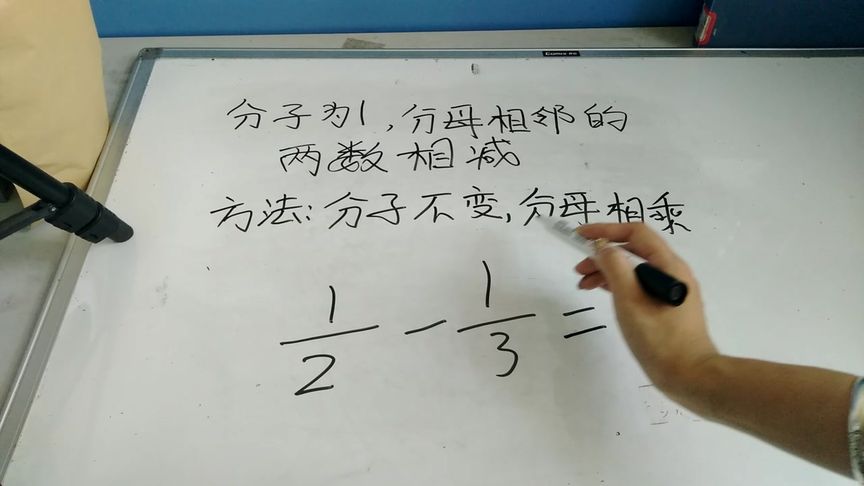 分子为1,分母相邻的
两数相减
方法:分子不变,分母相乘
1/2 - 1/3 =